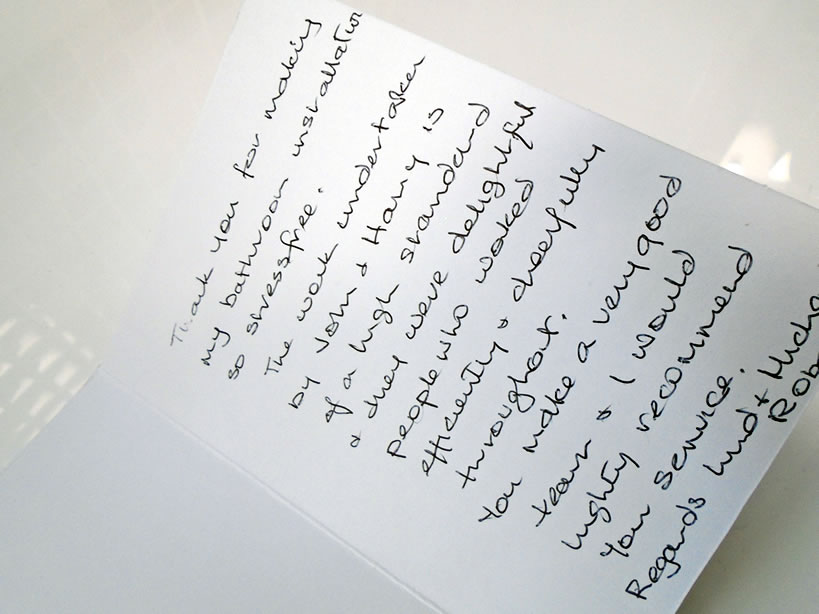 Thank you for making
my bathroom installation
so stressfree.
The work undertaken
by John & Harry is
of a high standard
& they were delightful
people who worked
efficiently & cheerfully
throughout.
You make a very good
team & I would
highly recommend
your service.
Regards